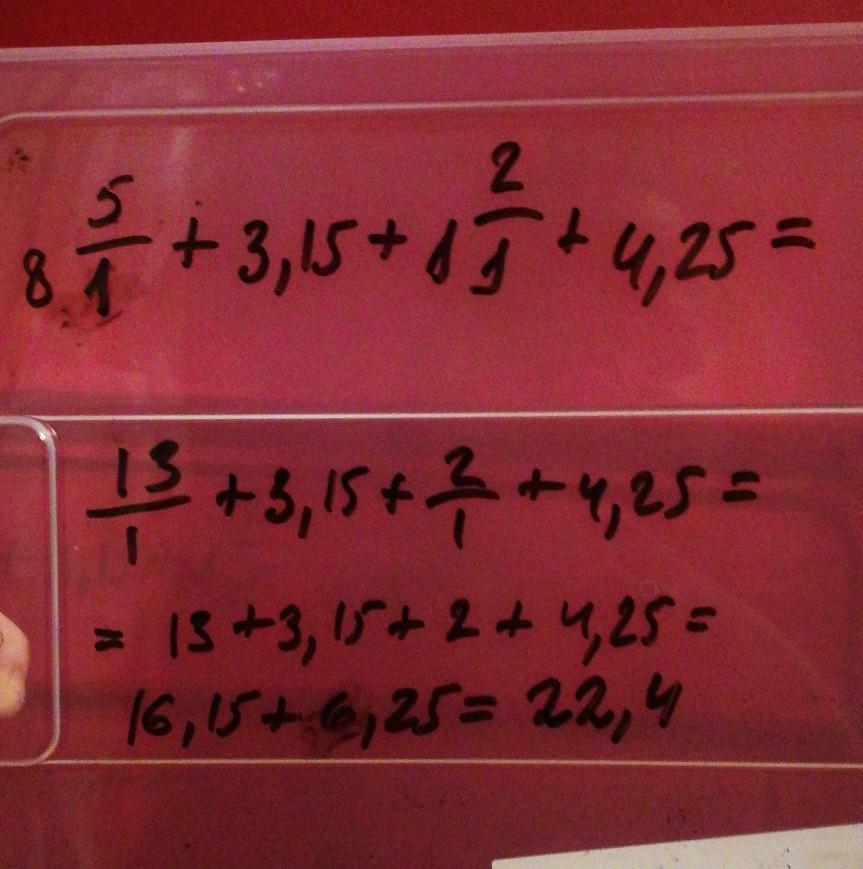 8 5/1 + 3,15 + 1 2/1 + 4,25 =
13/1 + 3,15 + 2/1 + 4,25 =
= 13 + 3,15 + 2 + 4,25 =
16,15 + 6,25 = 22,4